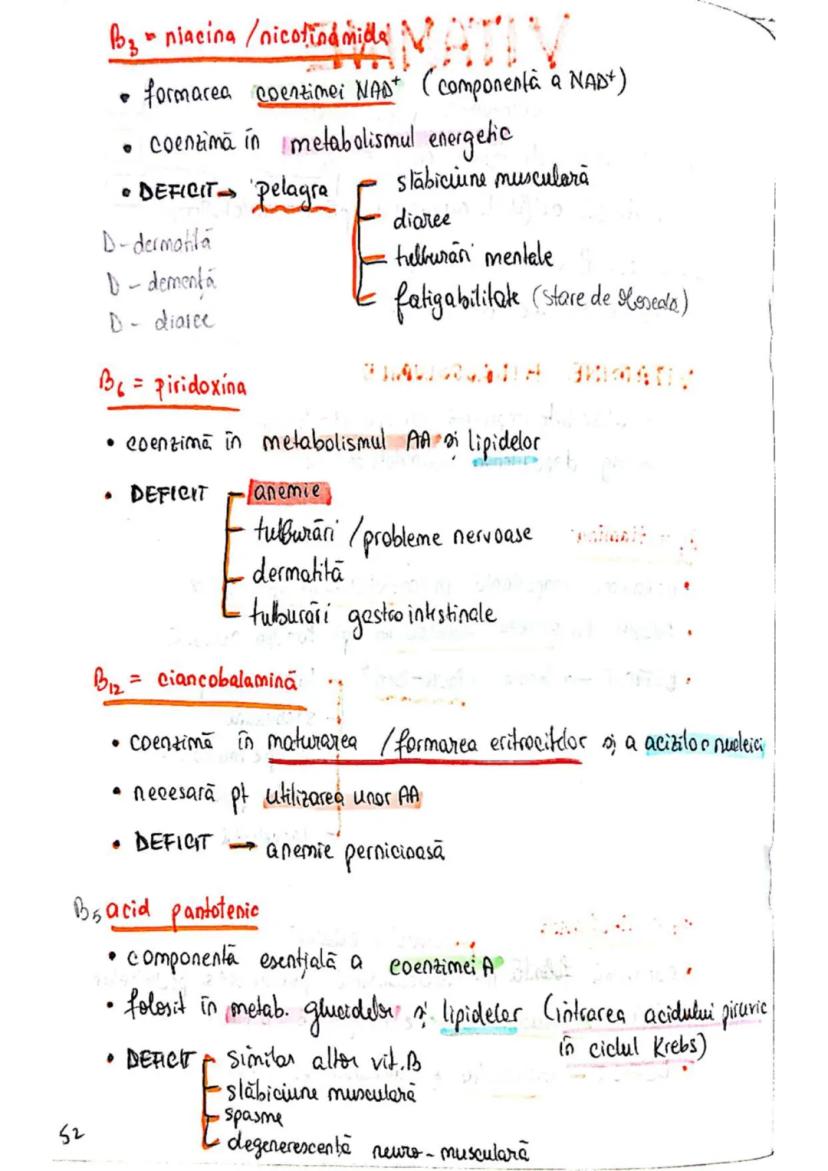 B3 = niacina / nicotinamida
• formarea coenzimei NAD+ (componentă a NAD+)
• coenzimă în metabolismul energetic
• DEFICIT → pelagra
slăbiciune musculară
diaree
tulburări mentale
fatigabilitate (stare de oboseala)
D - dermatită
D - demență
D - diaree
B6 = piridoxina
• coenzimă în metabolismul AA și lipidelor
• DEFICIT
anemie
tulburări / probleme nervoase
dermatită
tulburări gastrointestinale
B12 = ciancobalamină
• coenzimă în maturarea / formarea eritrocitelor și a acizilor nucleici
• necesară pt utilizarea unor AA
• DEFICIT → anemie pernicioasă
B5 acid pantotenic
• componentă esențială a coenzimei A
• folosit în metab. glucidelor și lipidelor (intrarea acidului piruvic
în ciclul Krebs)
• DEFICIT
similar altor vit. B
slăbiciune musculară
spasme
degenerescență neuro-musculară
52